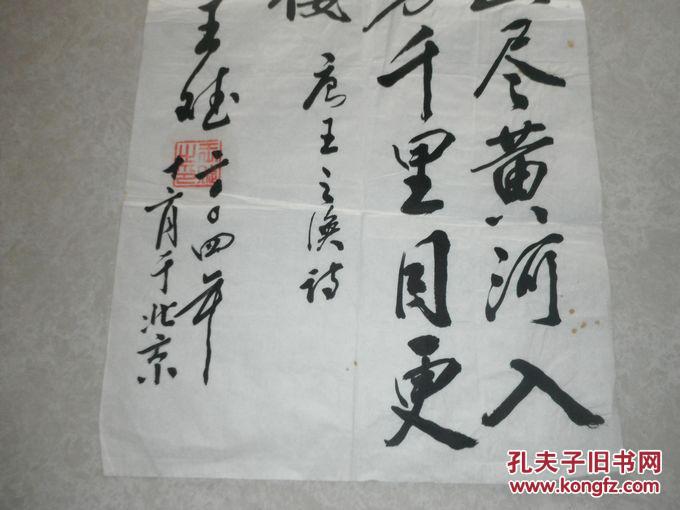 尽黄河入
千里目更
楼 唐王之涣诗
王
二〇〇四年
月于北京
孔夫子旧书网
www.kongfz.com